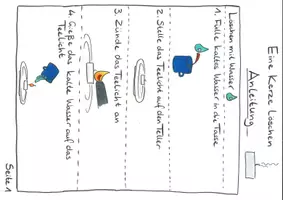 Eine Kerze Löschen
Anleitung
Löschen mit Wasser
1. Fülle kaltes Wasser in die Tasse
2. Stelle das Teelicht auf den Teller
3. Zünde das Teelicht an
4. Gieße das kalte Wasser auf das
Teelicht
Seite 1